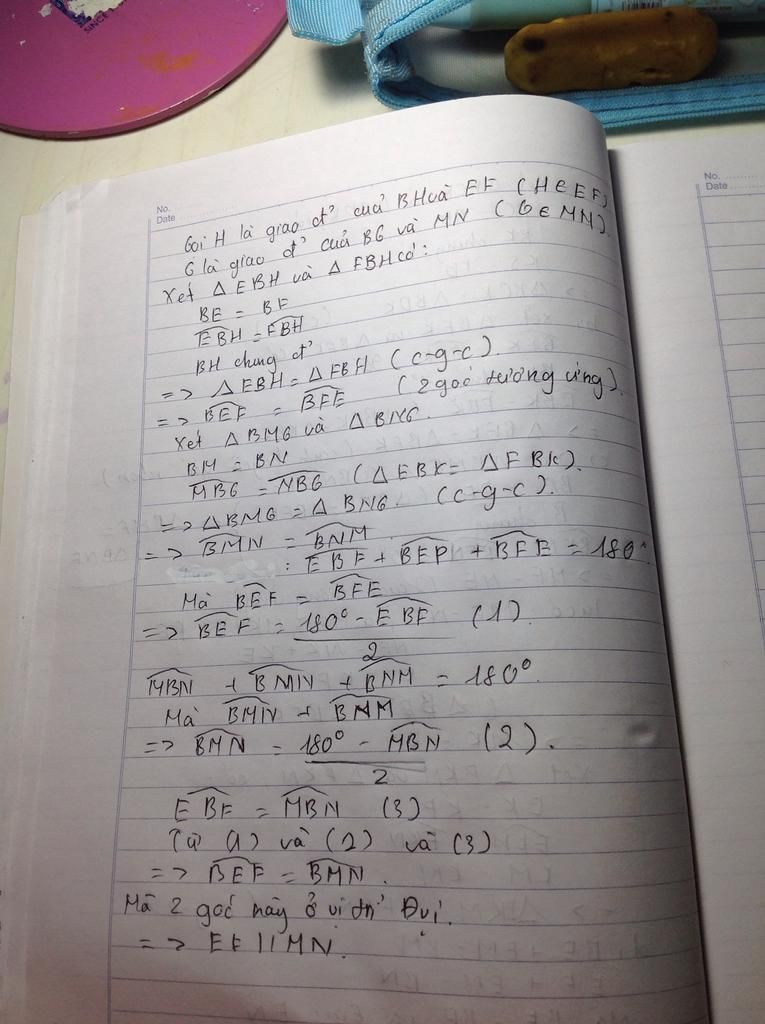 SINCE
No.
Date
No.
Date
Gọi H là giao đ' của BH và EF (H ∈ EF)
G là giao đ' của BG và MN (G ∈ MN).
Xét △EBH và △FBH có:
BE = BF
\widehat{EBH} = \widehat{FBH}
BH chung đ'
=> △EBH = △FBH (c-g-c).
=> \widehat{BEF} = \widehat{BFE} (2 góc tương ứng).
Xét △BMG và △BNG.
BM = BN
\widehat{MBG} = \widehat{NBG} (△EBK = △FBK).
=> △BMG = △BNG. (c-g-c).
=> \widehat{BMN} = \widehat{BNM}
: \widehat{EBF} + \widehat{BEP} + \widehat{BFE} = 180°
Mà \widehat{BEF} = \widehat{BFE}
=> \widehat{BEF} = \frac{180° - \widehat{EBF}}{2} (1).
\widehat{MBN} + \widehat{BMN} + \widehat{BNM} = 180°.
Mà \widehat{BMN} + \widehat{BNM}
=> \widehat{BMN} = \frac{180° - \widehat{MBN}}{2} (2).
\widehat{EBF} = \widehat{MBN} (3)
Từ (1) và (2) và (3)
=> \widehat{BEF} = \widehat{BMN}.
Mà 2 góc này ở vị trí Đvị.
=> EF // MN.